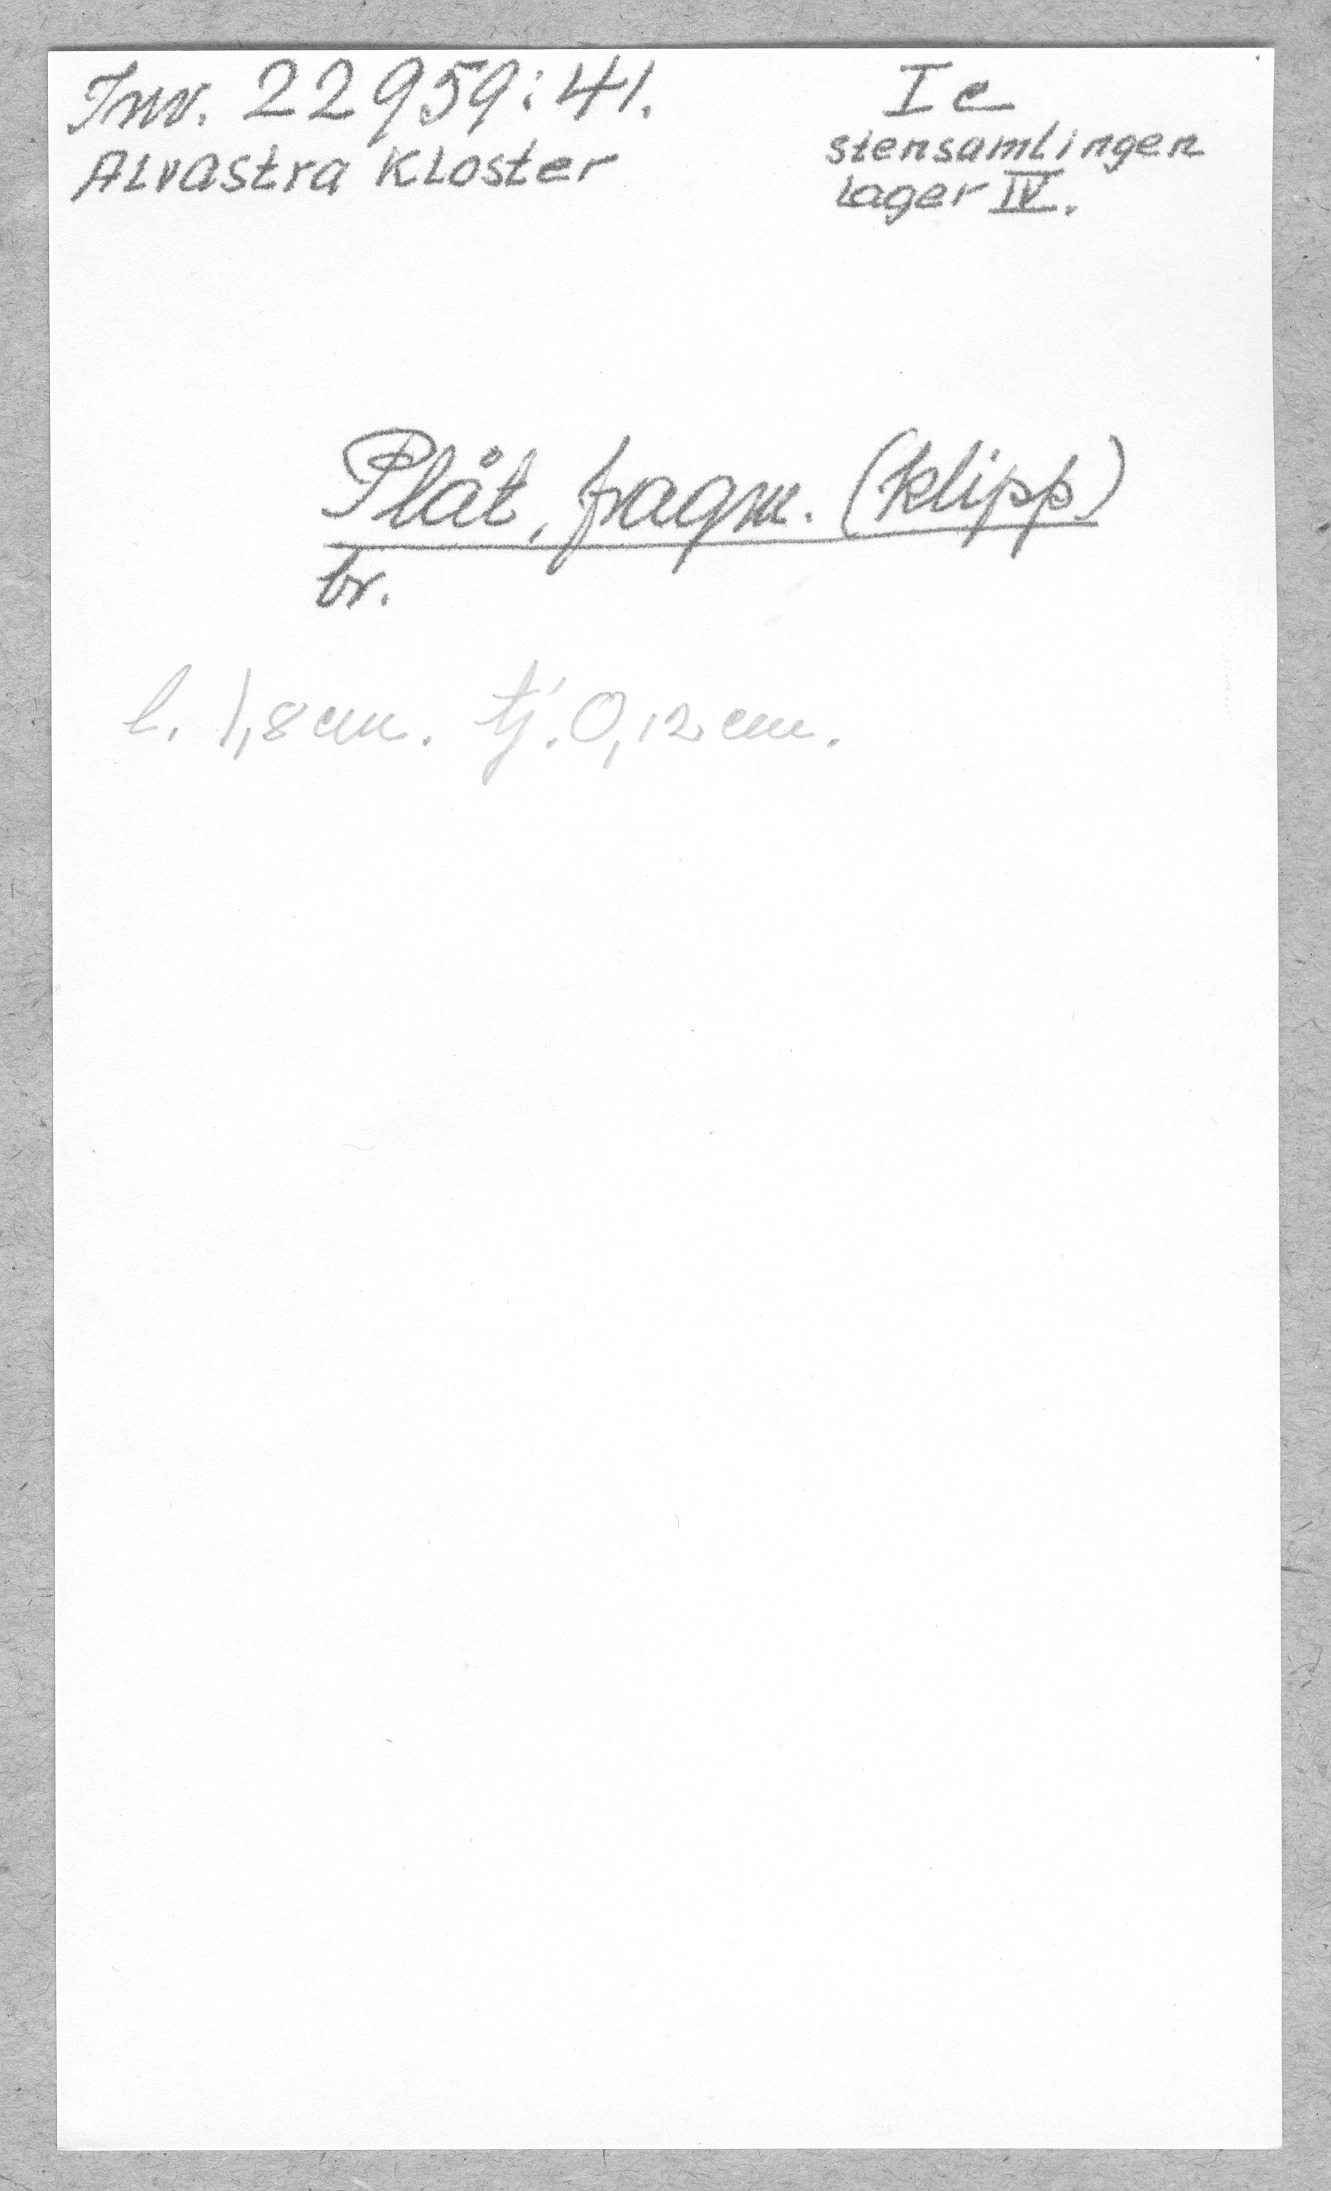 Inv. 22959:41.
Alvastra Kloster
I e
stensamlingen
lager IV.
Plåt, fragm. (klipp)
br.
l. 1,8 cm. tj. 0,12 cm.